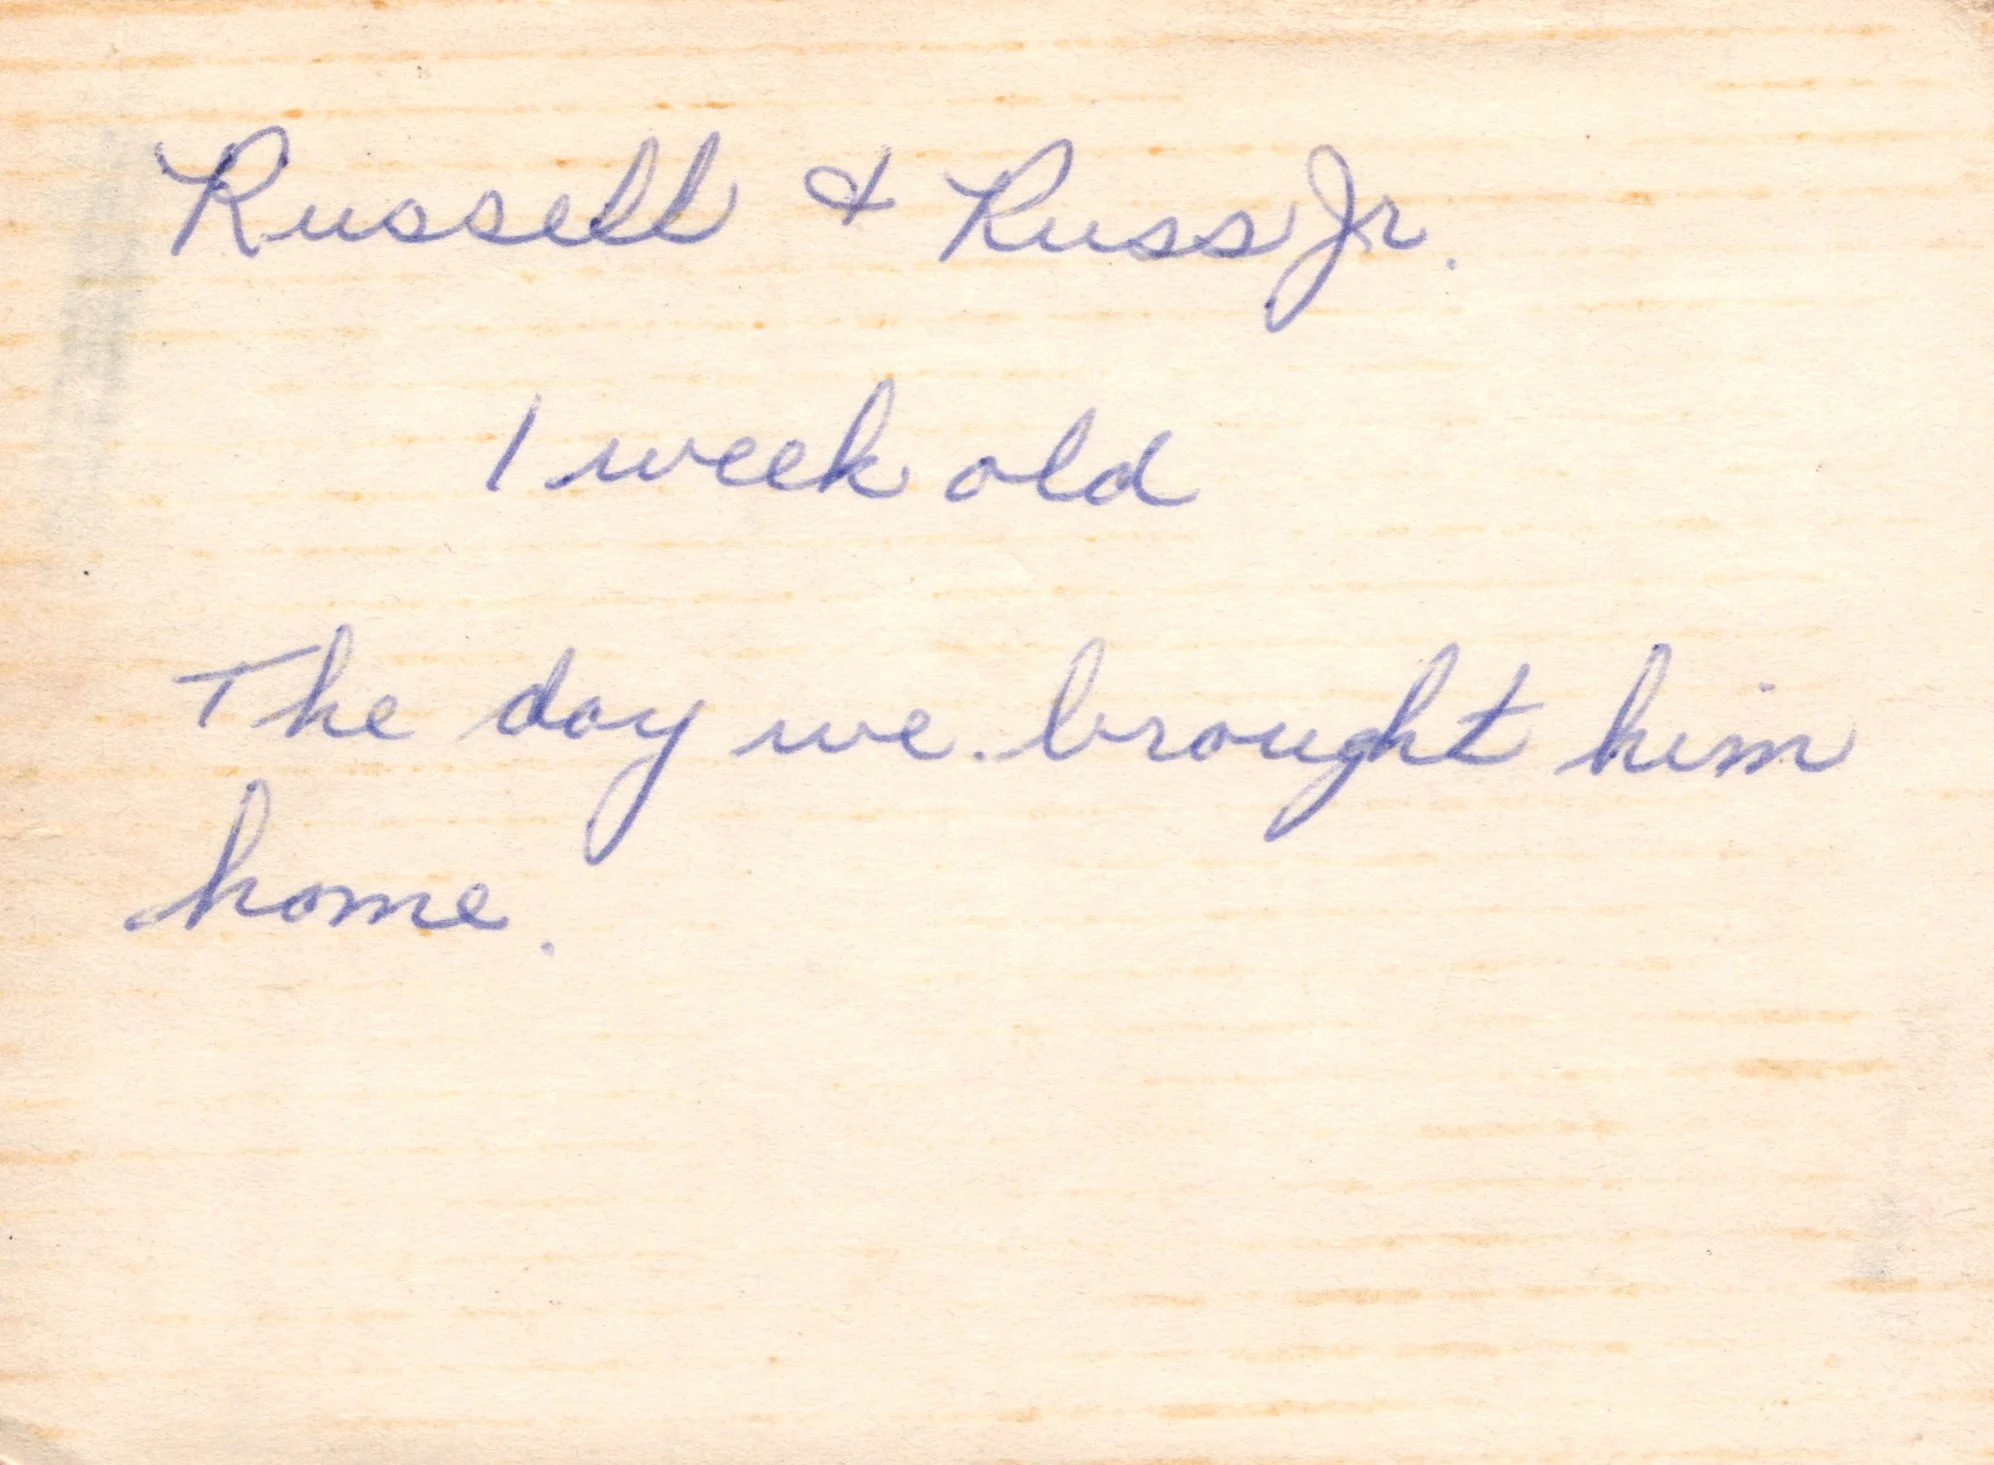 Russell & Russ Jr.
1 week old
The day we brought him
home.